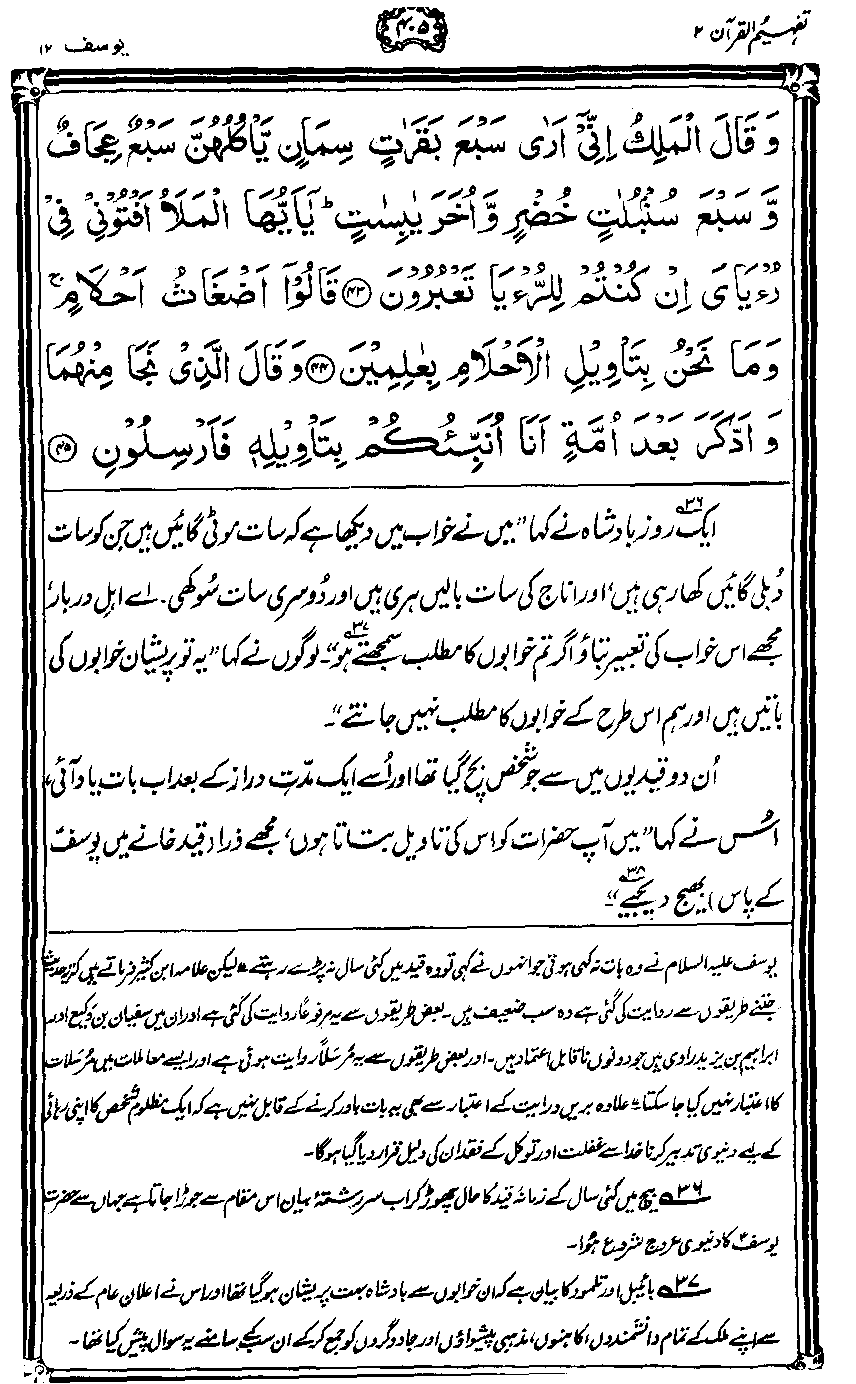 تفہیم القرآن ۲
۴۰۵
یوسف ۱۲
وَ قَالَ الْمَلِكُ اِنِّیْۤ اَرٰی سَبْعَ بَقَرٰتٍ سِمَانٍ یَّاْكُلُهُنَّ سَبْعٌ عِجَافٌ
وَّ سَبْعَ سُنْۢبُلٰتٍ خُضْرٍ وَّ اُخَرَ یٰبِسٰتٍ ؕ یٰۤاَیُّهَا الْمَلَاُ اَفْتُوْنِیْ فِیْ
رُءْیَایَ اِنْ كُنْتُمْ لِلرُّءْیَا تَعْبُرُوْنَ ﴿۴۳﴾ قَالُوْۤا اَضْغَاثُ اَحْلَامٍ ۚ
وَ مَا نَحْنُ بِتَاْوِیْلِ الْاَحْلَامِ بِعٰلِمِیْنَ ﴿۴۴﴾ وَ قَالَ الَّذِیْ نَجَا مِنْهُمَا
وَ ادَّكَرَ بَعْدَ اُمَّةٍ اَنَا اُنَبِّئُكُمْ بِتَاْوِیْلِهٖ فَاَرْسِلُوْنِ ﴿۴۵﴾
ایک۳۶ روز بادشاہ نے کہا ”میں نے خواب میں دیکھا ہے کہ سات موٹی گائیں ہیں جن کو سات
دُبلی گائیں کھا رہی ہیں، اور اناج کی سات بالیں ہری ہیں اور دُوسری سات سُوکھی۔ اے اہلِ دربار،
مجھے اس خواب کی تعبیر بتاؤ اگر تم خوابوں کا مطلب سمجھتے ہو“۳۷۔ لوگوں نے کہا ”یہ تو پریشان خوابوں کی
باتیں ہیں اور ہم اس طرح کے خوابوں کا مطلب نہیں جانتے“۔
اُن دو قیدیوں میں سے جو شخص بچ گیا تھا اور اُسے ایک مدّتِ دراز کے بعد اب بات یاد آئی،
اُس نے کہا ”میں آپ حضرات کو اس کی تاویل بتاتا ہوں، مجھے ذرا (قید خانے میں یوسفؑ
کے پاس) بھیج دیجیے“۳۸۔
یوسف علیہ السلام نے وہ بات نہ کہی ہوتی جو انہوں نے کہی تو وہ قید میں کئی سال نہ پڑے رہتے“ لیکن علامہ ابن کثیر فرماتے ہیں کہ ”یہ حدیث
جتنے طریقوں سے روایت کی گئی ہے وہ سب ضعیف ہیں۔ بعض طریقوں سے یہ مرفوعاً روایت کی گئی ہے اور ان میں سفیان بن وکیع اور
ابراہیم بن یزید راوی ہیں جو دونوں ناقابل اعتماد ہیں۔ اور بعض طریقوں سے یہ مُرسَلاً روایت ہوئی ہے اور ایسے معاملات میں مُرسَلات
کا اعتبار نہیں کیا جا سکتا“ علاوہ بریں درایت کے اعتبار سے بھی یہ بات باور کرنے کے قابل نہیں ہے کہ ایک مظلوم شخص کا اپنی رہائی
کے لیے دنیوی تدبیر کرنا خدا سے غفلت اور توکل کے فقدان کی دلیل قرار دیا گیا ہوگا۔
۳۶ بیچ میں کئی سال کے زمانۂ قید کا حال چھوڑ کر اب سررشتۂ بیان اس مقام سے جوڑا جاتا ہے جہاں سے حضرت
یوسفؑ کا دنیوی عروج شروع ہُوا۔
۳۷ بائیبل اور تلمود کا بیان ہے کہ ان خوابوں سے بادشاہ بہت پریشان ہو گیا تھا اور اس نے اعلان عام کے ذریعہ
سے اپنے ملک کے تمام دانشمندوں، کاہنوں، مذہبی پیشواؤں اور جادوگروں کو جمع کر کے ان سب کے سامنے یہ سوال پیش کیا تھا۔